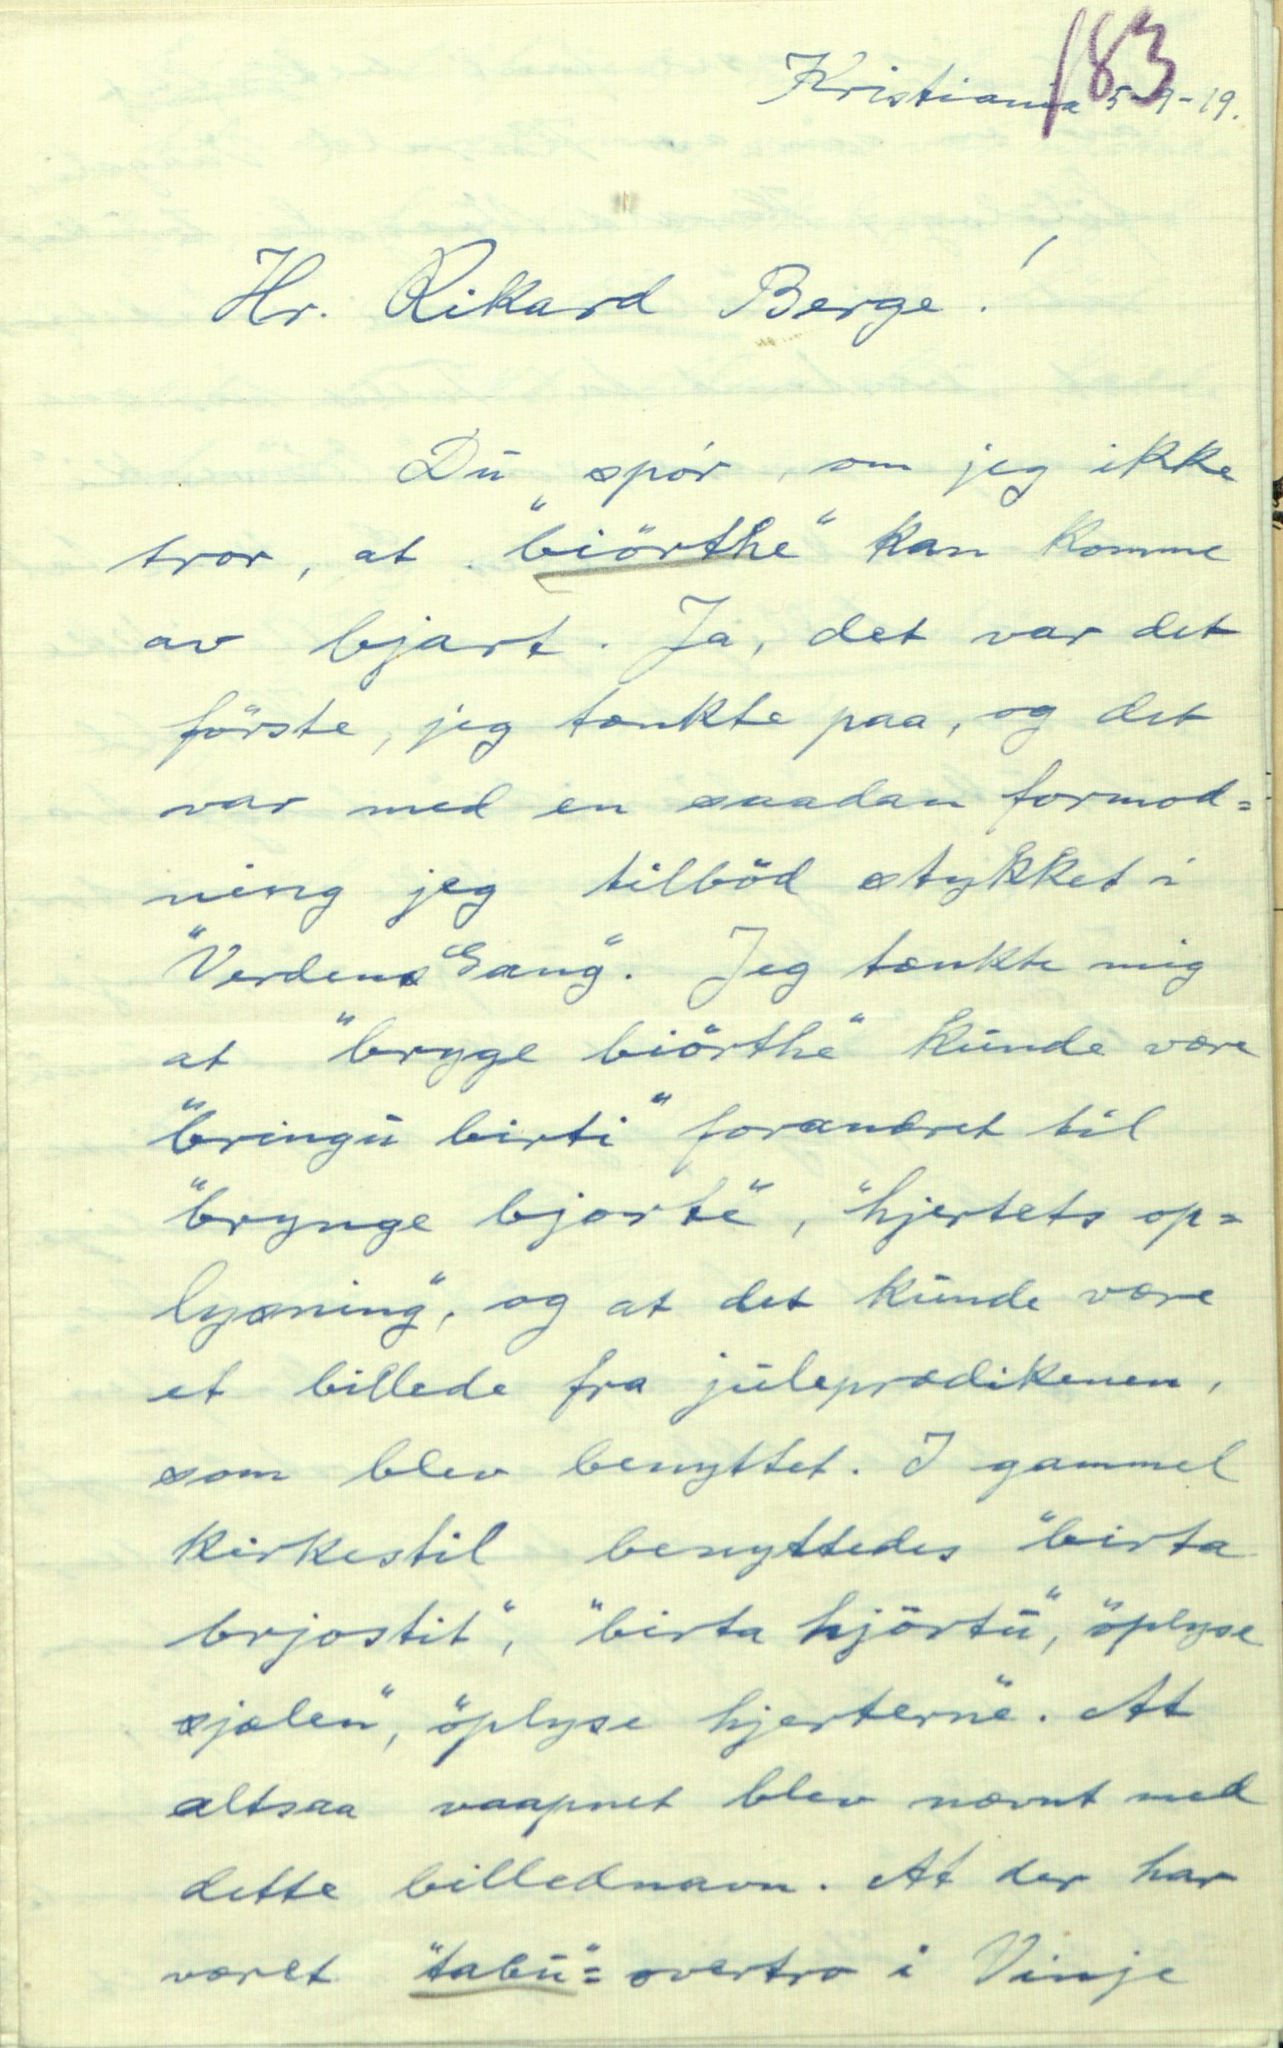 183
Kristiania 5-9-19.
Hr. Rikard Berge!
Du spör, om jeg ikke
tror, at "biörthe" kan komme
av bjart. Ja, det var det
förste, jeg tænkte paa, og det
var med en saadan formod=
ning jeg tilböd stykket i
"Verdens Gang". Jeg tænkte mig
at "bryge biörthe" kunde være
"bringu birti" forandret til
"brynge bjorte", "hjertets op=
lysning", og at det kunde være
et billede fra juleprædikenen,
som blev benyttet. I gammel
kirkestil benyttedes "birta
brjostit", "birta hjörtu", "oplyse
sjælen", "oplyse hjerterne". At
altsaa vaapnet blev nævnt med
dette billednavn. At der har
været "tabu"= overtro i Vinje